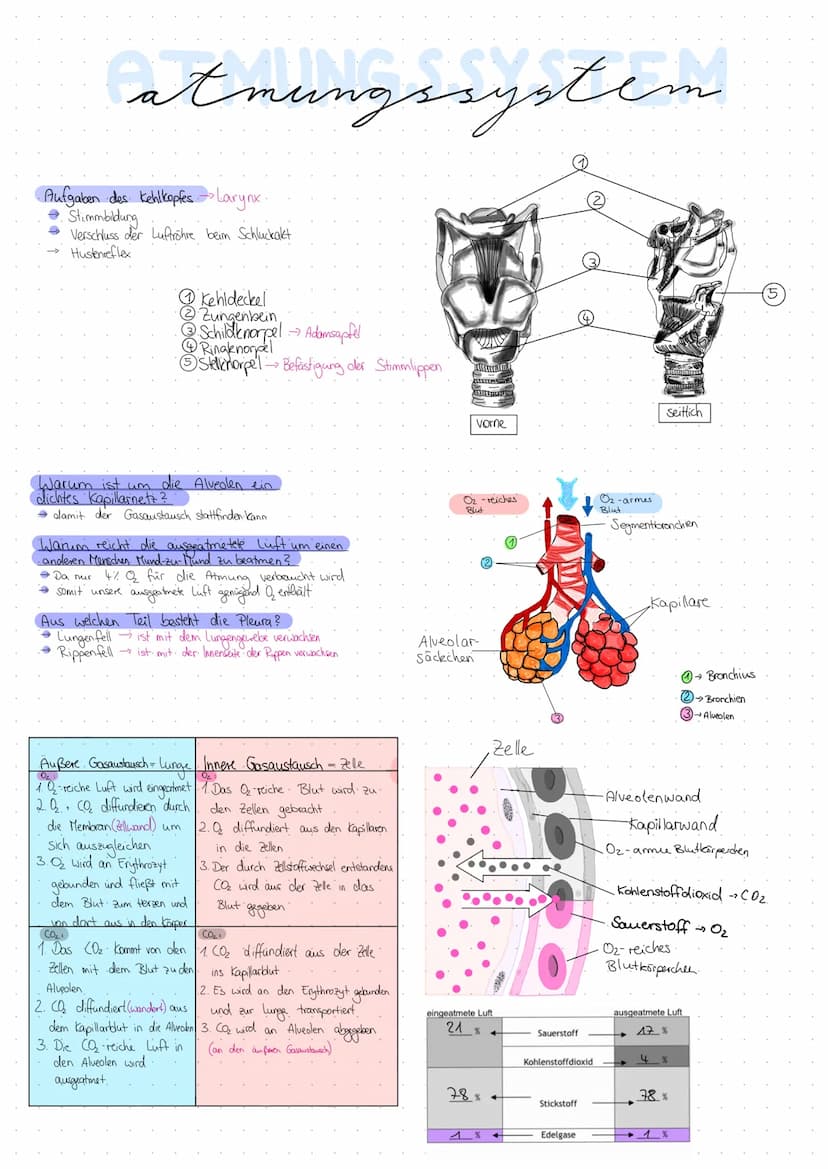 ATMUNGSSYSTEM
atmungssystem
Aufgaben des Kehlkopfes → Larynx
→ Stimmbildung
→ Verschluss der Luftröhre beim Schluckakt
→ Hustenreflex
① Kehldeckel
② Zungenbein
③ Schildknorpel → Adamsapfel
④ Ringknorpel
⑤ Stellknorpel → Befästigung der Stimmlippen
①
②
③
④
⑤
vorne
seitlich
Warum ist um die Alveolen ein
dichtes Kapillarnetz?
→ damit der Gasaustausch stattfinden kann
Warum reicht die ausgeatmetete Luft um einen
anderen Menschen Mund-zu-Mund zu beatmen?
→ Da nur 4% O₂ für die Atmung verbraucht wird
→ somit unsere ausgeatmete Luft genügend O₂ enthält
Aus welchen Teil besteht die Pleura?
→ Lungenfell → ist mit dem Lungengewebe verwachsen
→ Rippenfell → ist mit der Innenseite der Rippen verwachsen
O₂-reiches
Blut
O₂-armes
Blut
Segmentbronchien
①
②
Kapillare
Alveolar-
säckchen
③
① → Bronchius
② → Bronchien
③ → Alveolen
Äußere Gasaustausch = Lunge
O₂:
1. O₂-reiche Luft wird eingeatmet
2. O₂ + CO₂ diffundieren durch
die Membran (Zellwand) um
sich auszugleichen
3. O₂ wird an Erythrozyt
gebunden und fließt mit
dem Blut zum Herzen und
von dort aus in den Körper
CO₂:
1. Das CO₂ kommt von den
Zellen mit dem Blut zu den
Alveolen
2. CO₂ diffundiert (wandert) aus
dem Kapillarblut in die Alveolen
3. Die CO₂-reiche Luft in
den Alveolen wird
ausgeatmet.
Innere Gasaustausch = Zelle
O₂:
1. Das O₂-reiche Blut wird zu
den Zellen gebracht
2. O₂ diffundiert aus den Kapillaren
in die Zellen
3. Der durch Zellstoffwechsel entstandene
CO₂ wird aus der Zelle in das
Blut gegeben
CO₂:
1. CO₂ diffundiert aus der Zelle
ins Kapillarblut
2. Es wird an den Erythrozyt gebunden
und zur Lunge transportiert
3. CO₂ wird an Alveolen abgegeben
(an den äußeren Gasaustausch)
Zelle
Alveolenwand
Kapillarwand
O₂-arme Blutkörperchen
Kohlenstoffdioxid → CO₂
Sauerstoff → O₂
O₂-reiches
Blutkörperchen
eingeatmete Luft
ausgeatmete Luft
21 % Sauerstoff 17 %
Kohlenstoffdioxid 4 %
78 % Stickstoff 78 %
1 % Edelgase 1 %